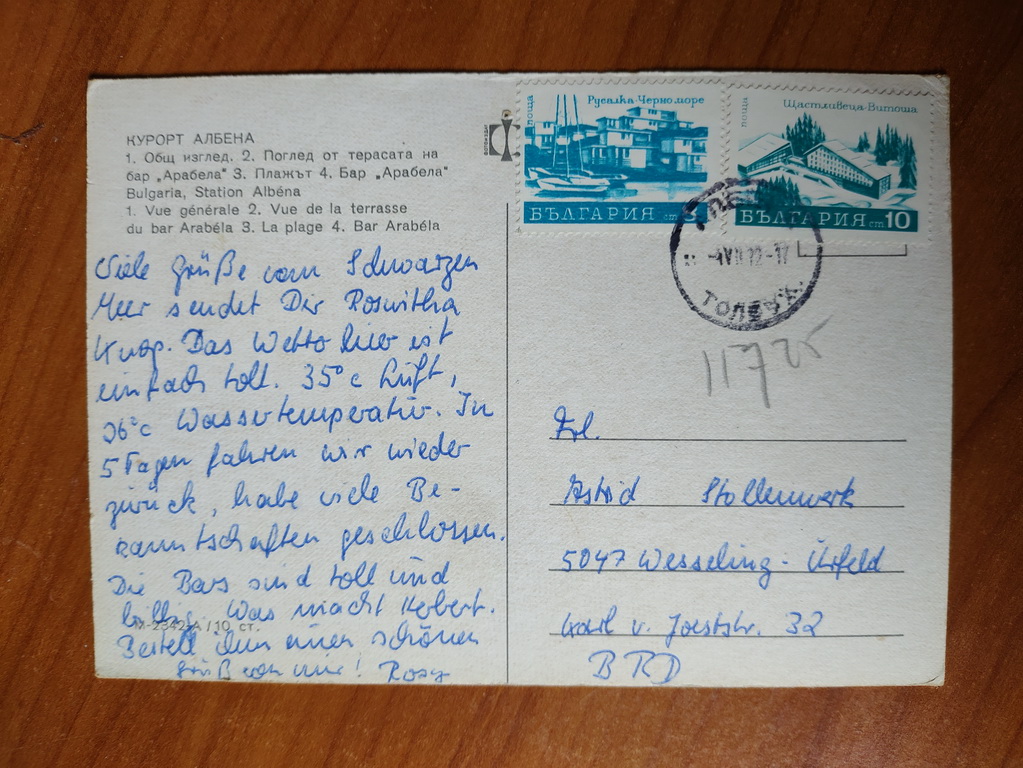 КУРОРТ АЛБЕНА
1. Общ изглед. 2. Поглед от терасата на
бар „Арабела" 3. Плажът 4. Бар „Арабела"
Bulgaria, Station Albéna
1. Vue générale 2. Vue de la terrasse
du bar Arabéla 3. La plage 4. Bar Arabéla
Viele Grüße vom Schwarzen
Meer sendet Dir Roswitha
Das Wetter hier ist
einfach toll. 35°c Luft,
26°c Wassertemperatur. In
5 Tagen fahren wir wieder
zurück, habe viele Be-
kanntschaften geschlossen.
Die Bars sind toll und
billig. Was macht Herbert.
Bestell ihm einen schönen
Gruß von mir! Rosy
М-2342-А / 10 ст.
поща
Русалка-Черно море
БЪЛГАРИЯ ст
поща
Щастливеца-Витоша
БЪЛГАРИЯ ст 10
ТОЛБУХ.
11725
Frl.
Astrid Stollenwerk
5047 Wesseling-Urfeld
Karl v. Joeststr. 32
BRD